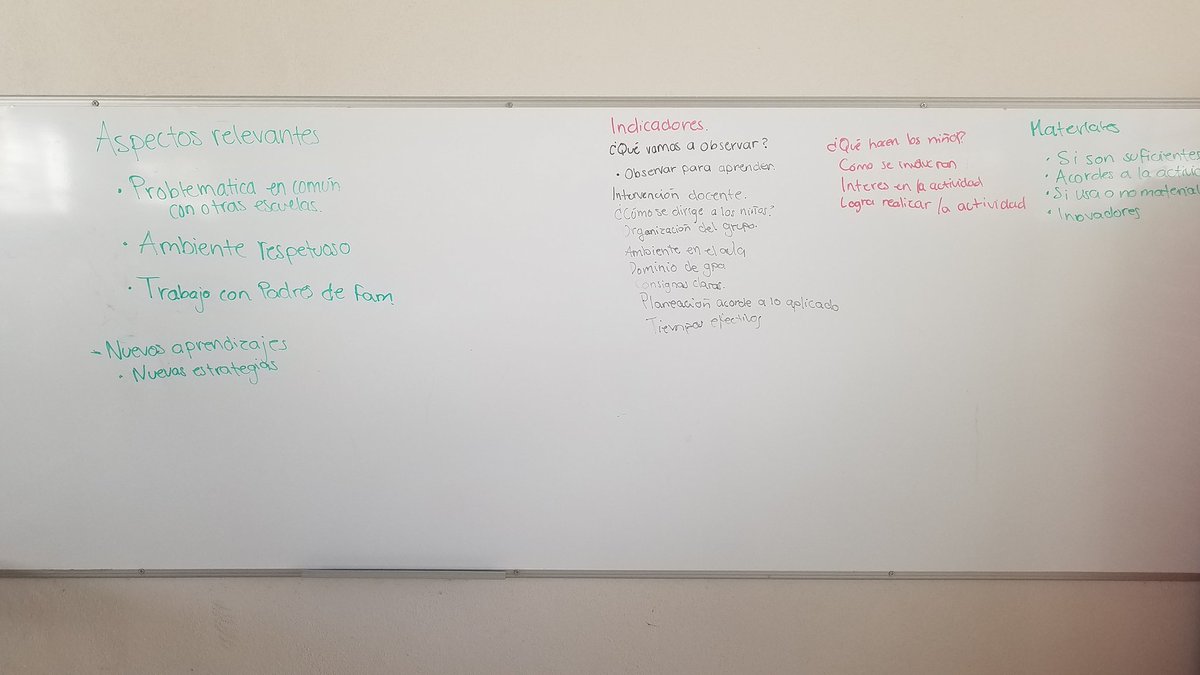 Aspectos relevantes
• Problematica en común
con otras escuelas.
• Ambiente respetuoso
• Trabajo con Padres de Fam
- Nuevos aprendizajes
• Nuevas estrategias
Indicadores.
¿Qué vamos a observar?
• Observar para aprender.
Intervención docente.
¿Cómo se dirige a los niños?
Organización del grupo.
Ambiente en el aula
Dominio de gpo
Consignas claras.
Planeación acorde a lo aplicado
Tiempos efectivos
¿Qué hacen los niños?
Como se involucran
Interes en la actividad
Logra realizar la actividad
Materiales
• Si son suficientes
• Acordes a la activid
• Si usa o no material
• Inovadores